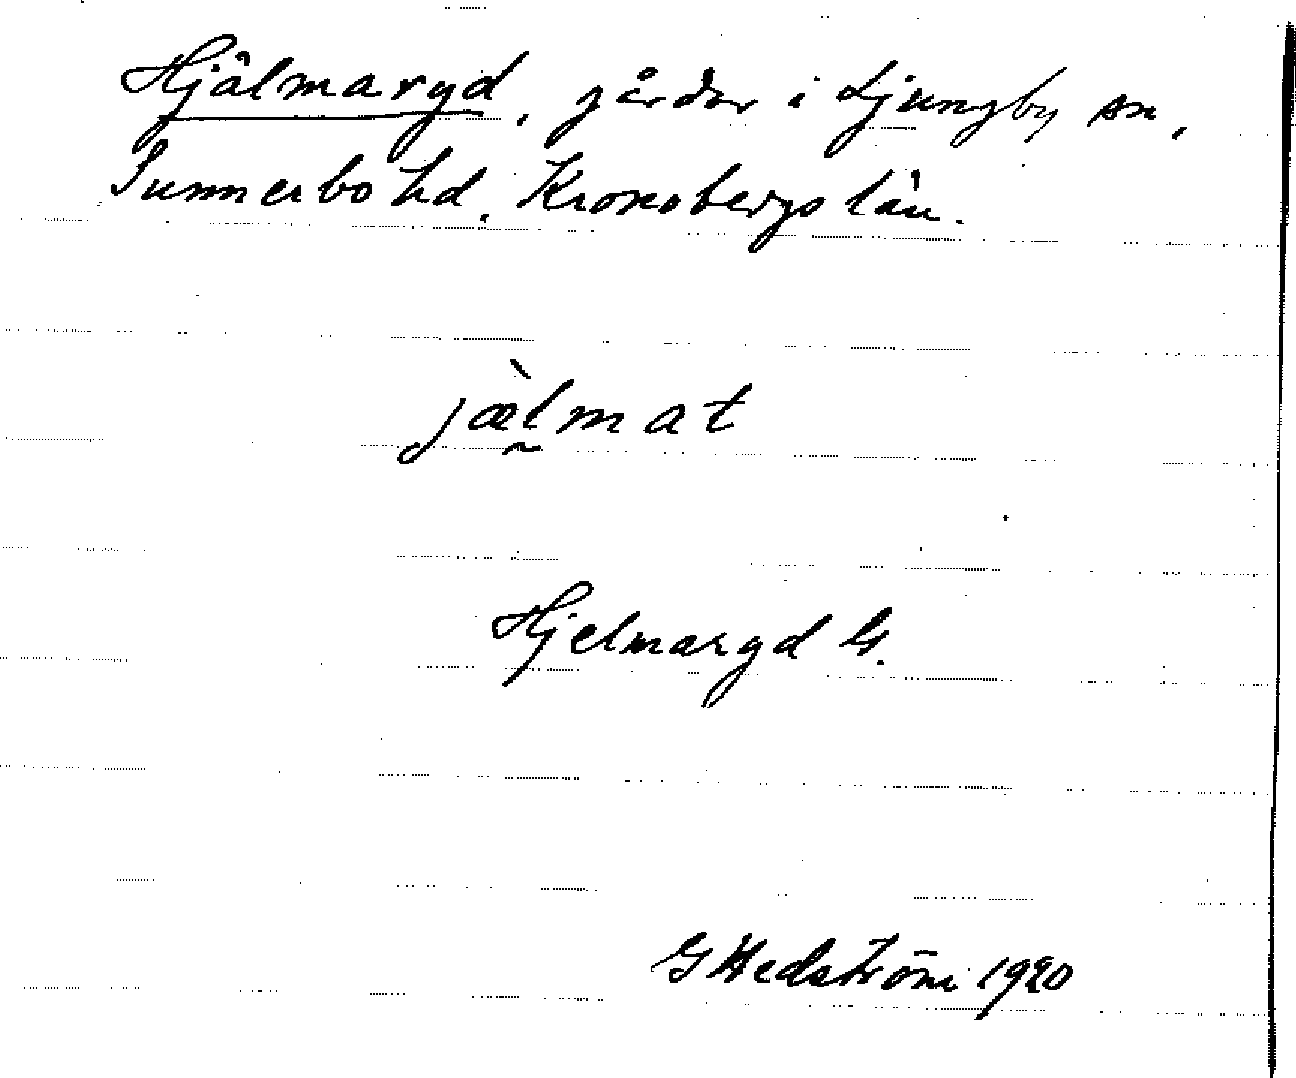 Hjälmaryd, gårdar i Ljungby sn,
Sunnerbo hd, Kronobergs län.
jæ̀lmat
Hjelmaryd G.
G Hedström 1920